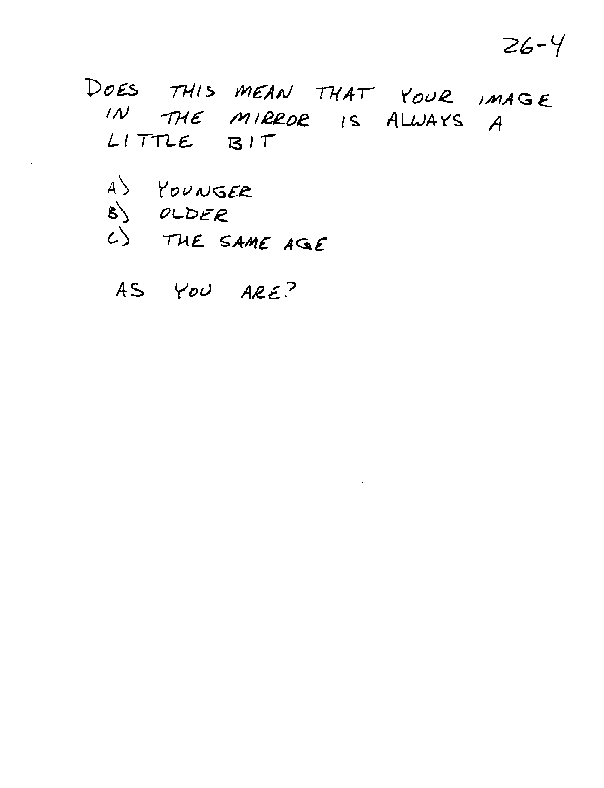 26-4
DOES THIS MEAN THAT YOUR IMAGE
IN THE MIRROR IS ALWAYS A
LITTLE BIT
A) YOUNGER
B) OLDER
C) THE SAME AGE
AS YOU ARE?